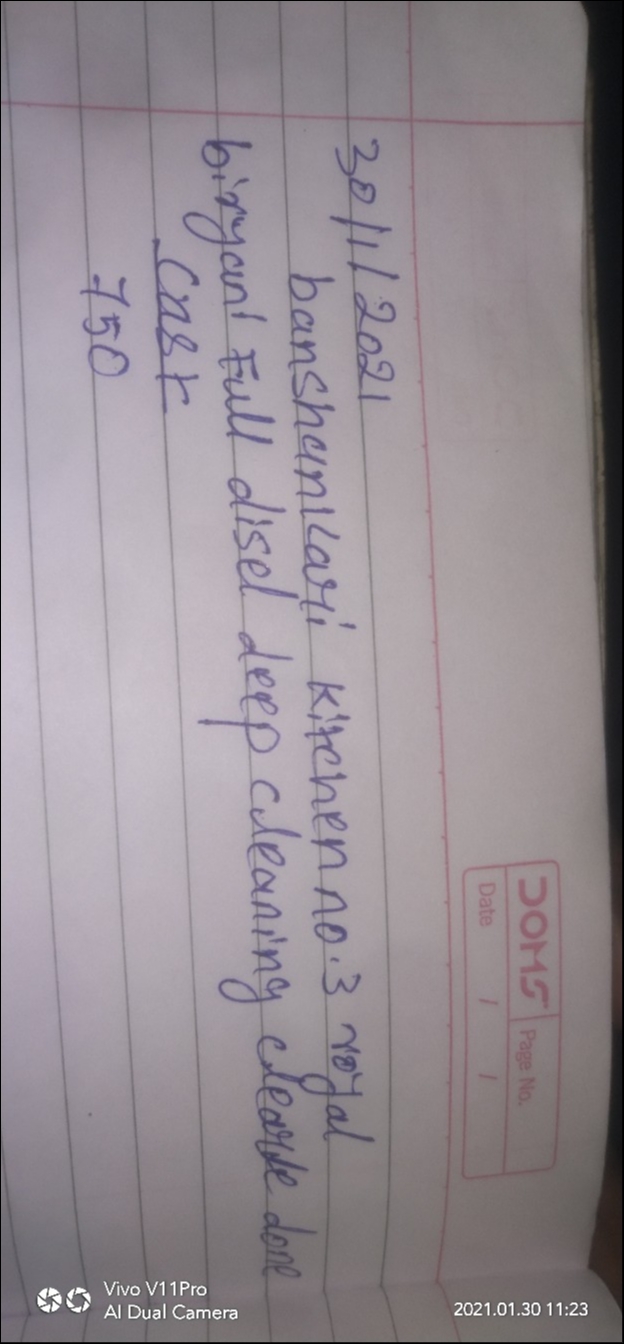 DOMS Page No.
Date / /
30/1/2021
banshankari kitchen no.3 royal
biryani Full disel deep cleaning done
Cast
750
Vivo V11Pro
AI Dual Camera
2021.01.30 11:23